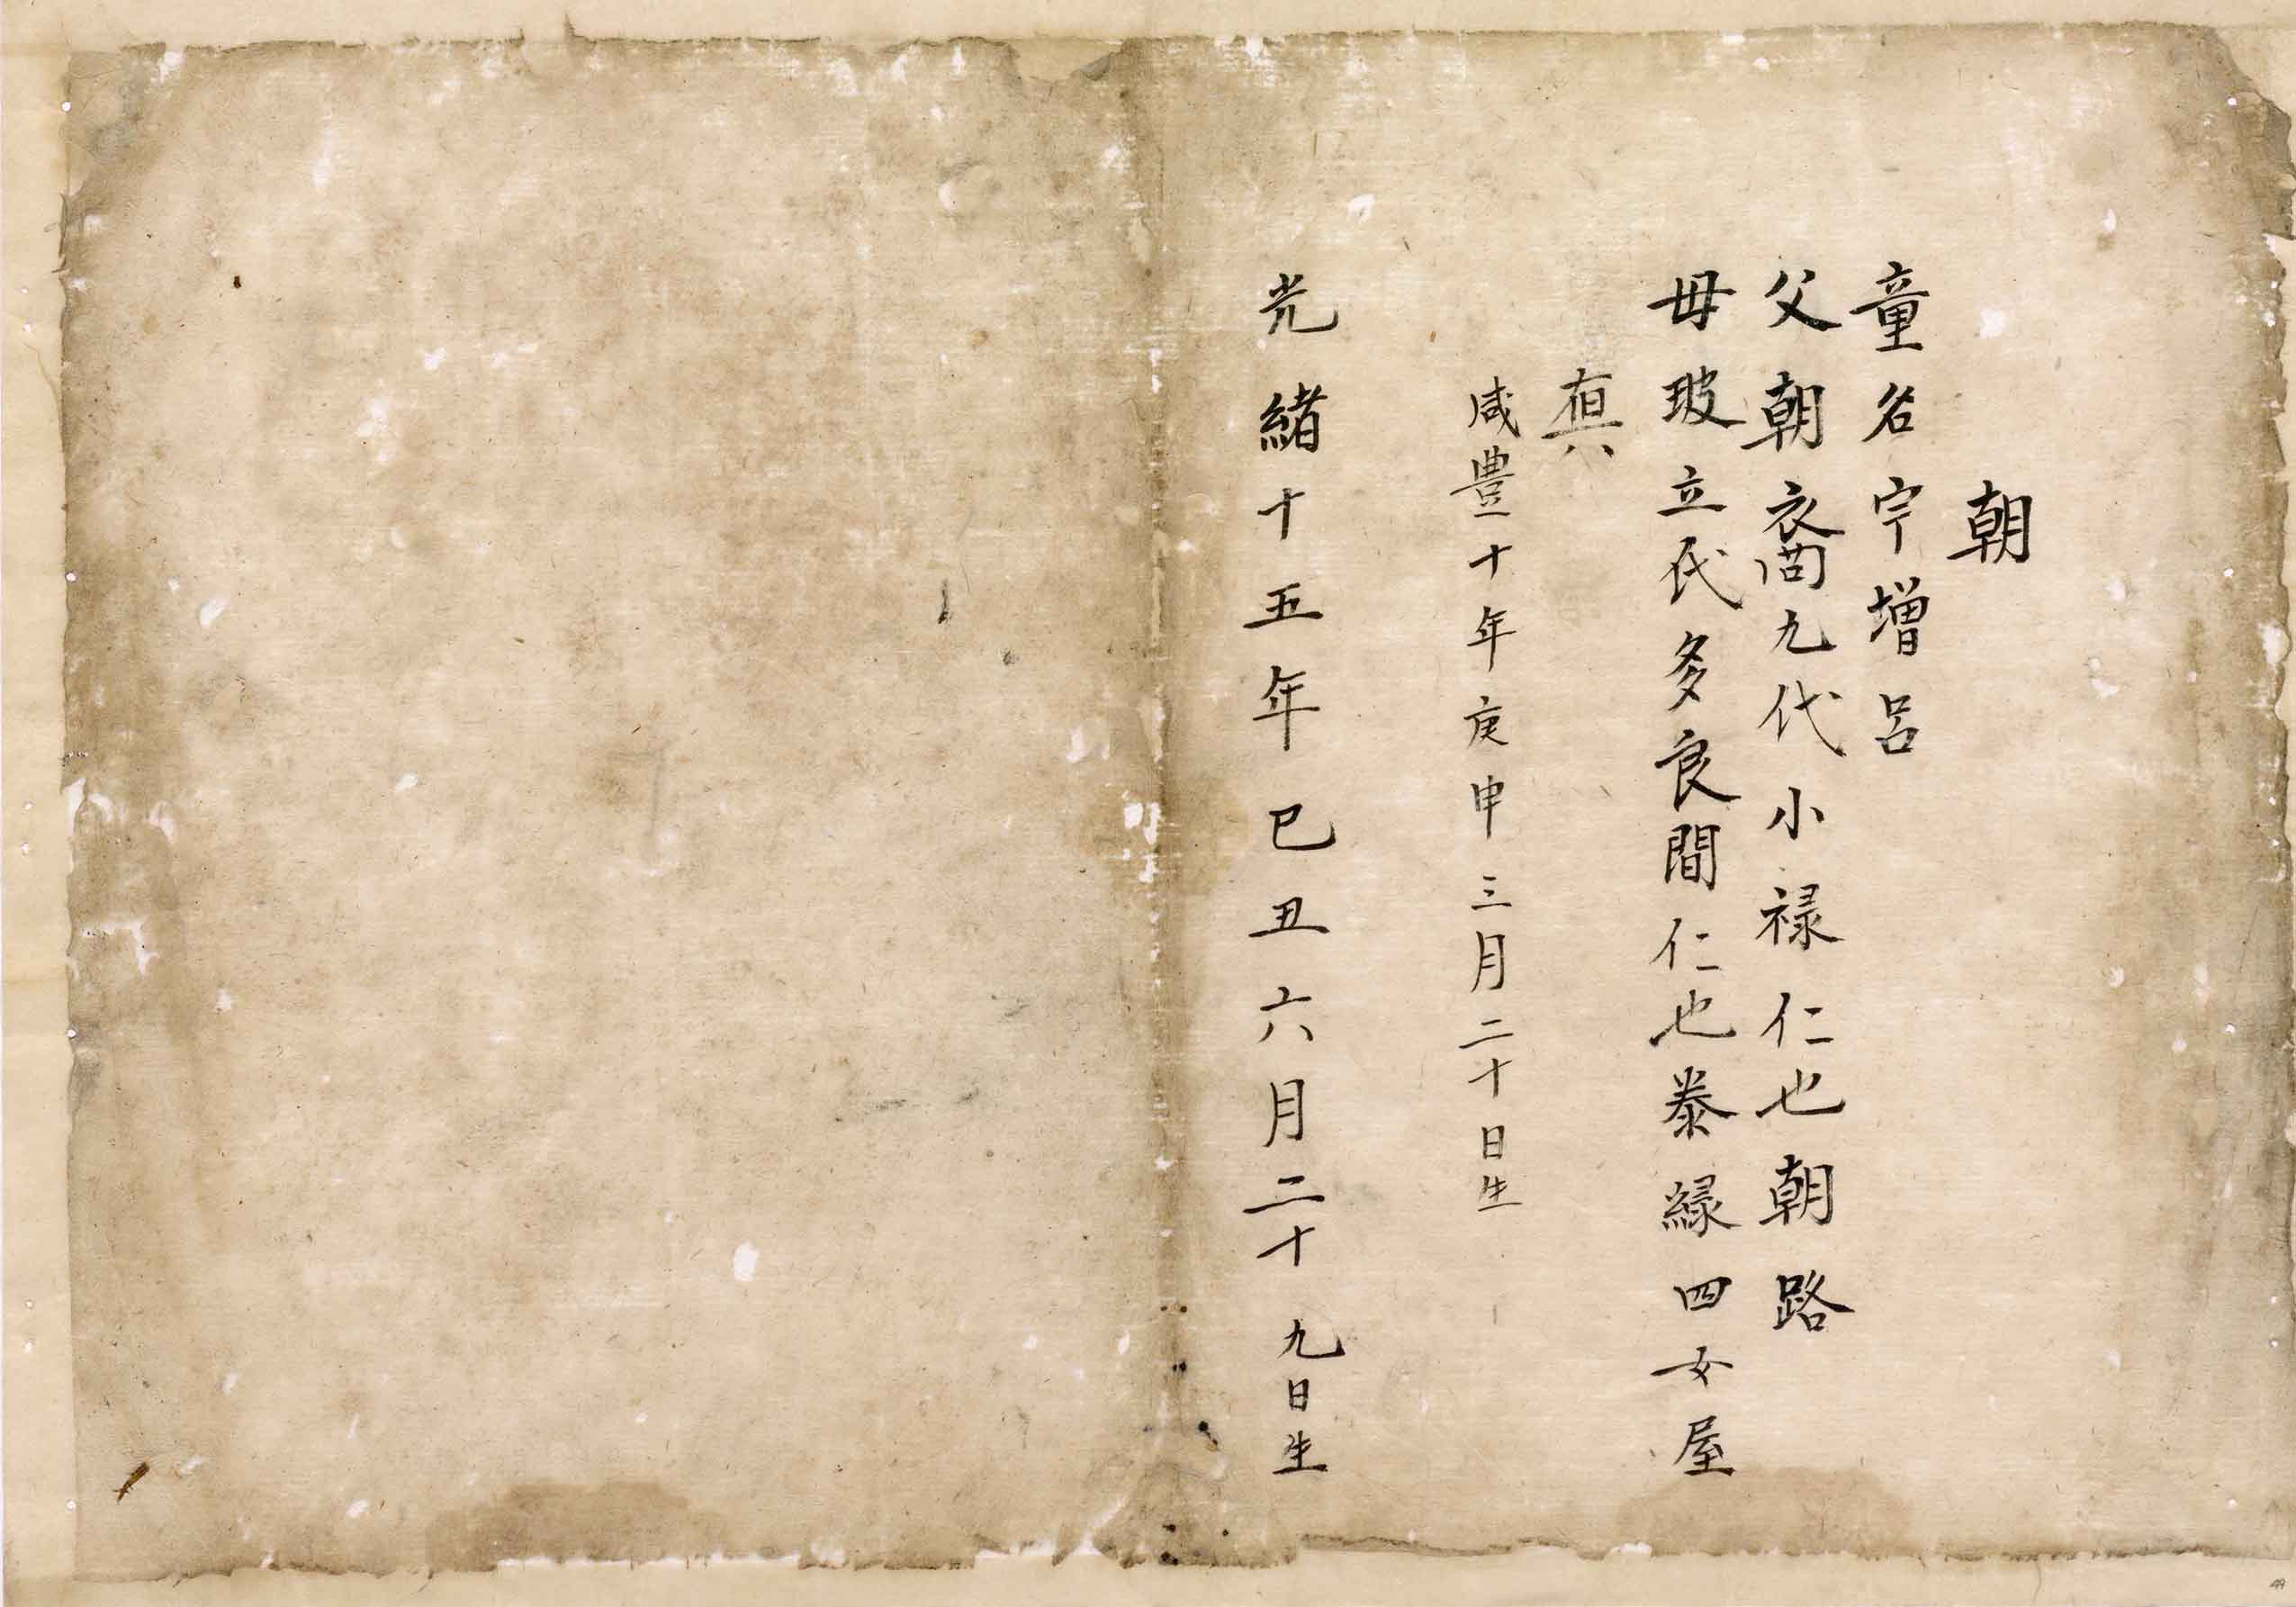 朝
童名宇増呂
父朝衣啇九代小禄仁也朝路
毋玻立氏多良間仁也泰縁四女屋
真
咸豊十年庚申三月二十日生
光緒十五年巳丑六月二十九日生